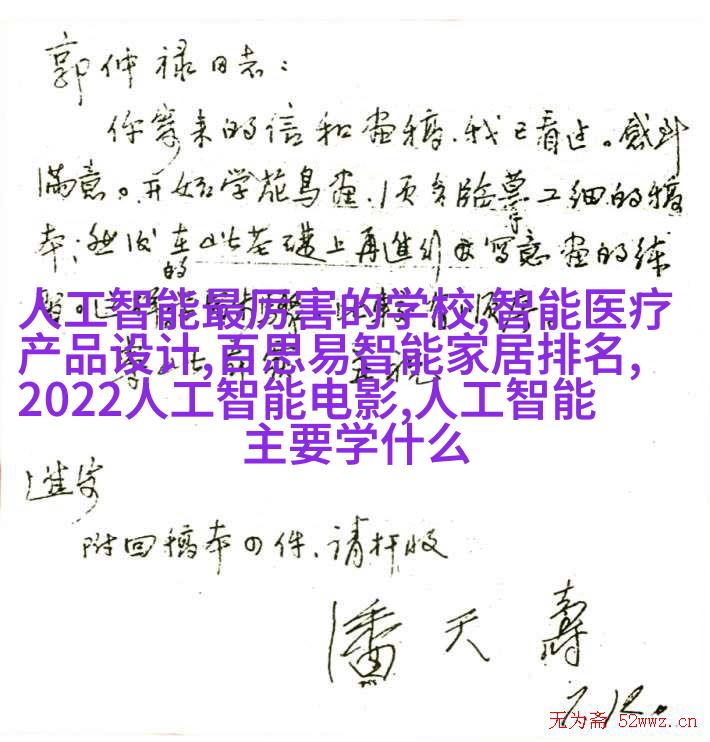 郭仲禄同志：
你寄来的信和画稿，我已看过。感到
满意。开始学花鸟画，须多临摹工细的稿
本；然后在此基础上再进行写意画的练
的
人工智能最厉害的学校,智能医疗
产品设计,百思易智能家居排名,
2022人工智能电影,人工智能
主要学什么
进安
附回稿本四件、请检收
潘天寿
7.12.
无为斋 52wwz.cn